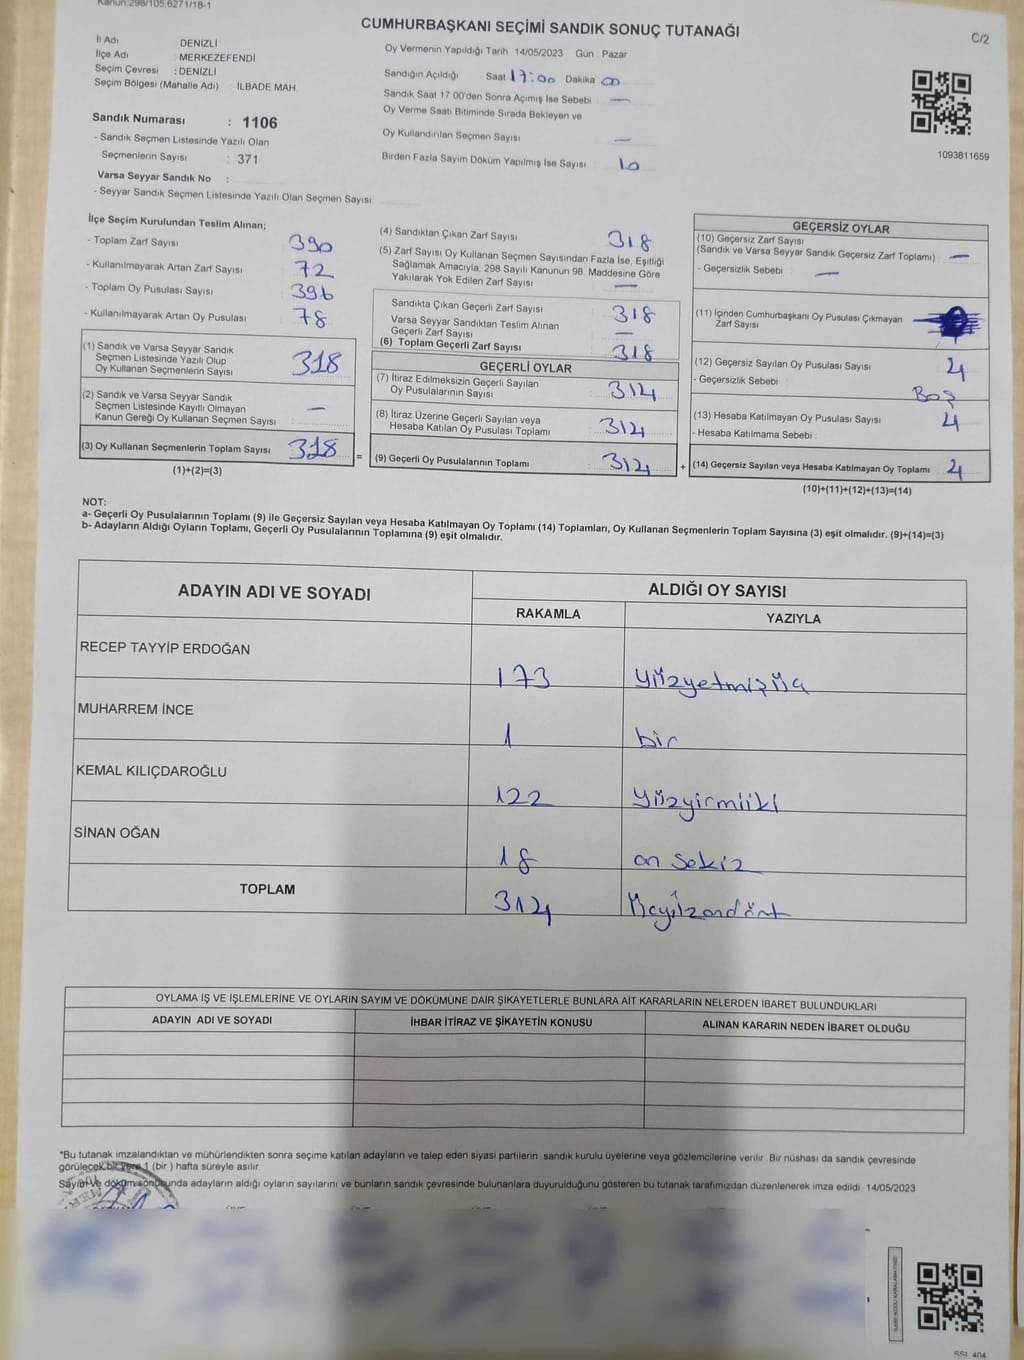 Kanun:298/105,6271/18-1
CUMHURBAŞKANI SEÇİMİ SANDIK SONUÇ TUTANAĞI
C/2
İl Adı : DENİZLİ
İlçe Adı : MERKEZEFENDİ
Seçim Çevresi : DENİZLİ
Seçim Bölgesi (Mahalle Adı) : İLBADE MAH.
Oy Vermenin Yapıldığı Tarih 14/05/2023 Gün : Pazar
Sandığın Açıldığı Saat 17:00 Dakika 00
Sandık Saat 17:00'den Sonra Açımış İse Sebebi —
Oy Verme Saati Bitiminde Sırada Bekleyen ve
Oy Kullandırılan Seçmen Sayısı —
Birden Fazla Sayım Döküm Yapılmış İse Sayısı
1093811659
Sandık Numarası : 1106
- Sandık Seçmen Listesinde Yazılı Olan
Seçmenlerin Sayısı : 371
Varsa Seyyar Sandık No :
- Seyyar Sandık Seçmen Listesinde Yazılı Olan Seçmen Sayısı:
İlçe Seçim Kurulundan Teslim Alınan;
- Toplam Zarf Sayısı 390
- Kullanılmayarak Artan Zarf Sayısı 72
- Toplam Oy Pusulası Sayısı 396
- Kullanılmayarak Artan Oy Pusulası 78
(1) Sandık ve Varsa Seyyar Sandık
Seçmen Listesinde Yazılı Olup
Oy Kullanan Seçmenlerin Sayısı 318
(2) Sandık ve Varsa Seyyar Sandık
Seçmen Listesinde Kayıtlı Olmayan
Kanun Gereği Oy Kullanan Seçmen Sayısı : —
(3) Oy Kullanan Seçmenlerin Toplam Sayısı 318
(1)+(2)=(3)
=
(4) Sandıktan Çıkan Zarf Sayısı 318
(5) Zarf Sayısı Oy Kullanan Seçmen Sayısından Fazla İse, Eşitliği
Sağlamak Amacıyla, 298 Sayılı Kanunun 98. Maddesine Göre
Yakılarak Yok Edilen Zarf Sayısı —
Sandıkta Çıkan Geçerli Zarf Sayısı 318
Varsa Seyyar Sandıktan Teslim Alınan
Geçerli Zarf Sayısı —
(6) Toplam Geçerli Zarf Sayısı 318
GEÇERLİ OYLAR
(7) İtiraz Edilmeksizin Geçerli Sayılan
Oy Pusulalarının Sayısı 314
(8) İtiraz Üzerine Geçerli Sayılan veya
Hesaba Katılan Oy Pusulası Toplamı 314
(9) Geçerli Oy Pusulalarının Toplamı 314
+
GEÇERSİZ OYLAR
(10) Geçersiz Zarf Sayısı
(Sandık ve Varsa Seyyar Sandık Geçersiz Zarf Toplamı) : —
- Geçersizlik Sebebi : —
(11) İçinden Cumhurbaşkanı Oy Pusulası Çıkmayan
Zarf Sayısı
(12) Geçersiz Sayılan Oy Pusulası Sayısı 4
- Geçersizlik Sebebi : Boş
(13) Hesaba Katılmayan Oy Pusulası Sayısı 4
- Hesaba Katılmama Sebebi :
(14) Geçersiz Sayılan veya Hesaba Katılmayan Oy Toplamı 4
(10)+(11)+(12)+(13)=(14)
NOT:
a- Geçerli Oy Pusulalarının Toplamı (9) ile Geçersiz Sayılan veya Hesaba Katılmayan Oy Toplamı (14) Toplamları, Oy Kullanan Seçmenlerin Toplam Sayısına (3) eşit olmalıdır. (9)+(14)=(3)
b- Adayların Aldığı Oyların Toplamı, Geçerli Oy Pusulalarının Toplamına (9) eşit olmalıdır.
ADAYIN ADI VE SOYADI
ALDIĞI OY SAYISI
RAKAMLA YAZIYLA
RECEP TAYYİP ERDOĞAN 173 yüzyetmişüç
MUHARREM İNCE 1 bir
KEMAL KILIÇDAROĞLU 122 yüzyirmiiki
SİNAN OĞAN 18 on sekiz
TOPLAM 314 Üçyüzondört
OYLAMA İŞ VE İŞLEMLERİNE VE OYLARIN SAYIM VE DÖKÜMÜNE DAİR ŞİKAYETLERLE BUNLARA AİT KARARLARIN NELERDEN İBARET BULUNDUKLARI
ADAYIN ADI VE SOYADI İHBAR İTİRAZ VE ŞİKAYETİN KONUSU ALINAN KARARIN NEDEN İBARET OLDUĞU
*Bu tutanak imzalandıktan ve mühürlendikten sonra seçime katılan adayların ve talep eden siyasi partilerin sandık kurulu üyelerine veya gözlemcilerine verilir. Bir nüshası da sandık çevresinde
görülecek bir yere 1 (bir) hafta süreyle asılır.
Sayım ve döküm sonucunda adayların aldığı oyların sayılarını ve bunların sandık çevresinde bulunanlara duyurulduğunu gösteren bu tutanak tarafımızdan düzenlenerek imza edildi. 14/05/2023